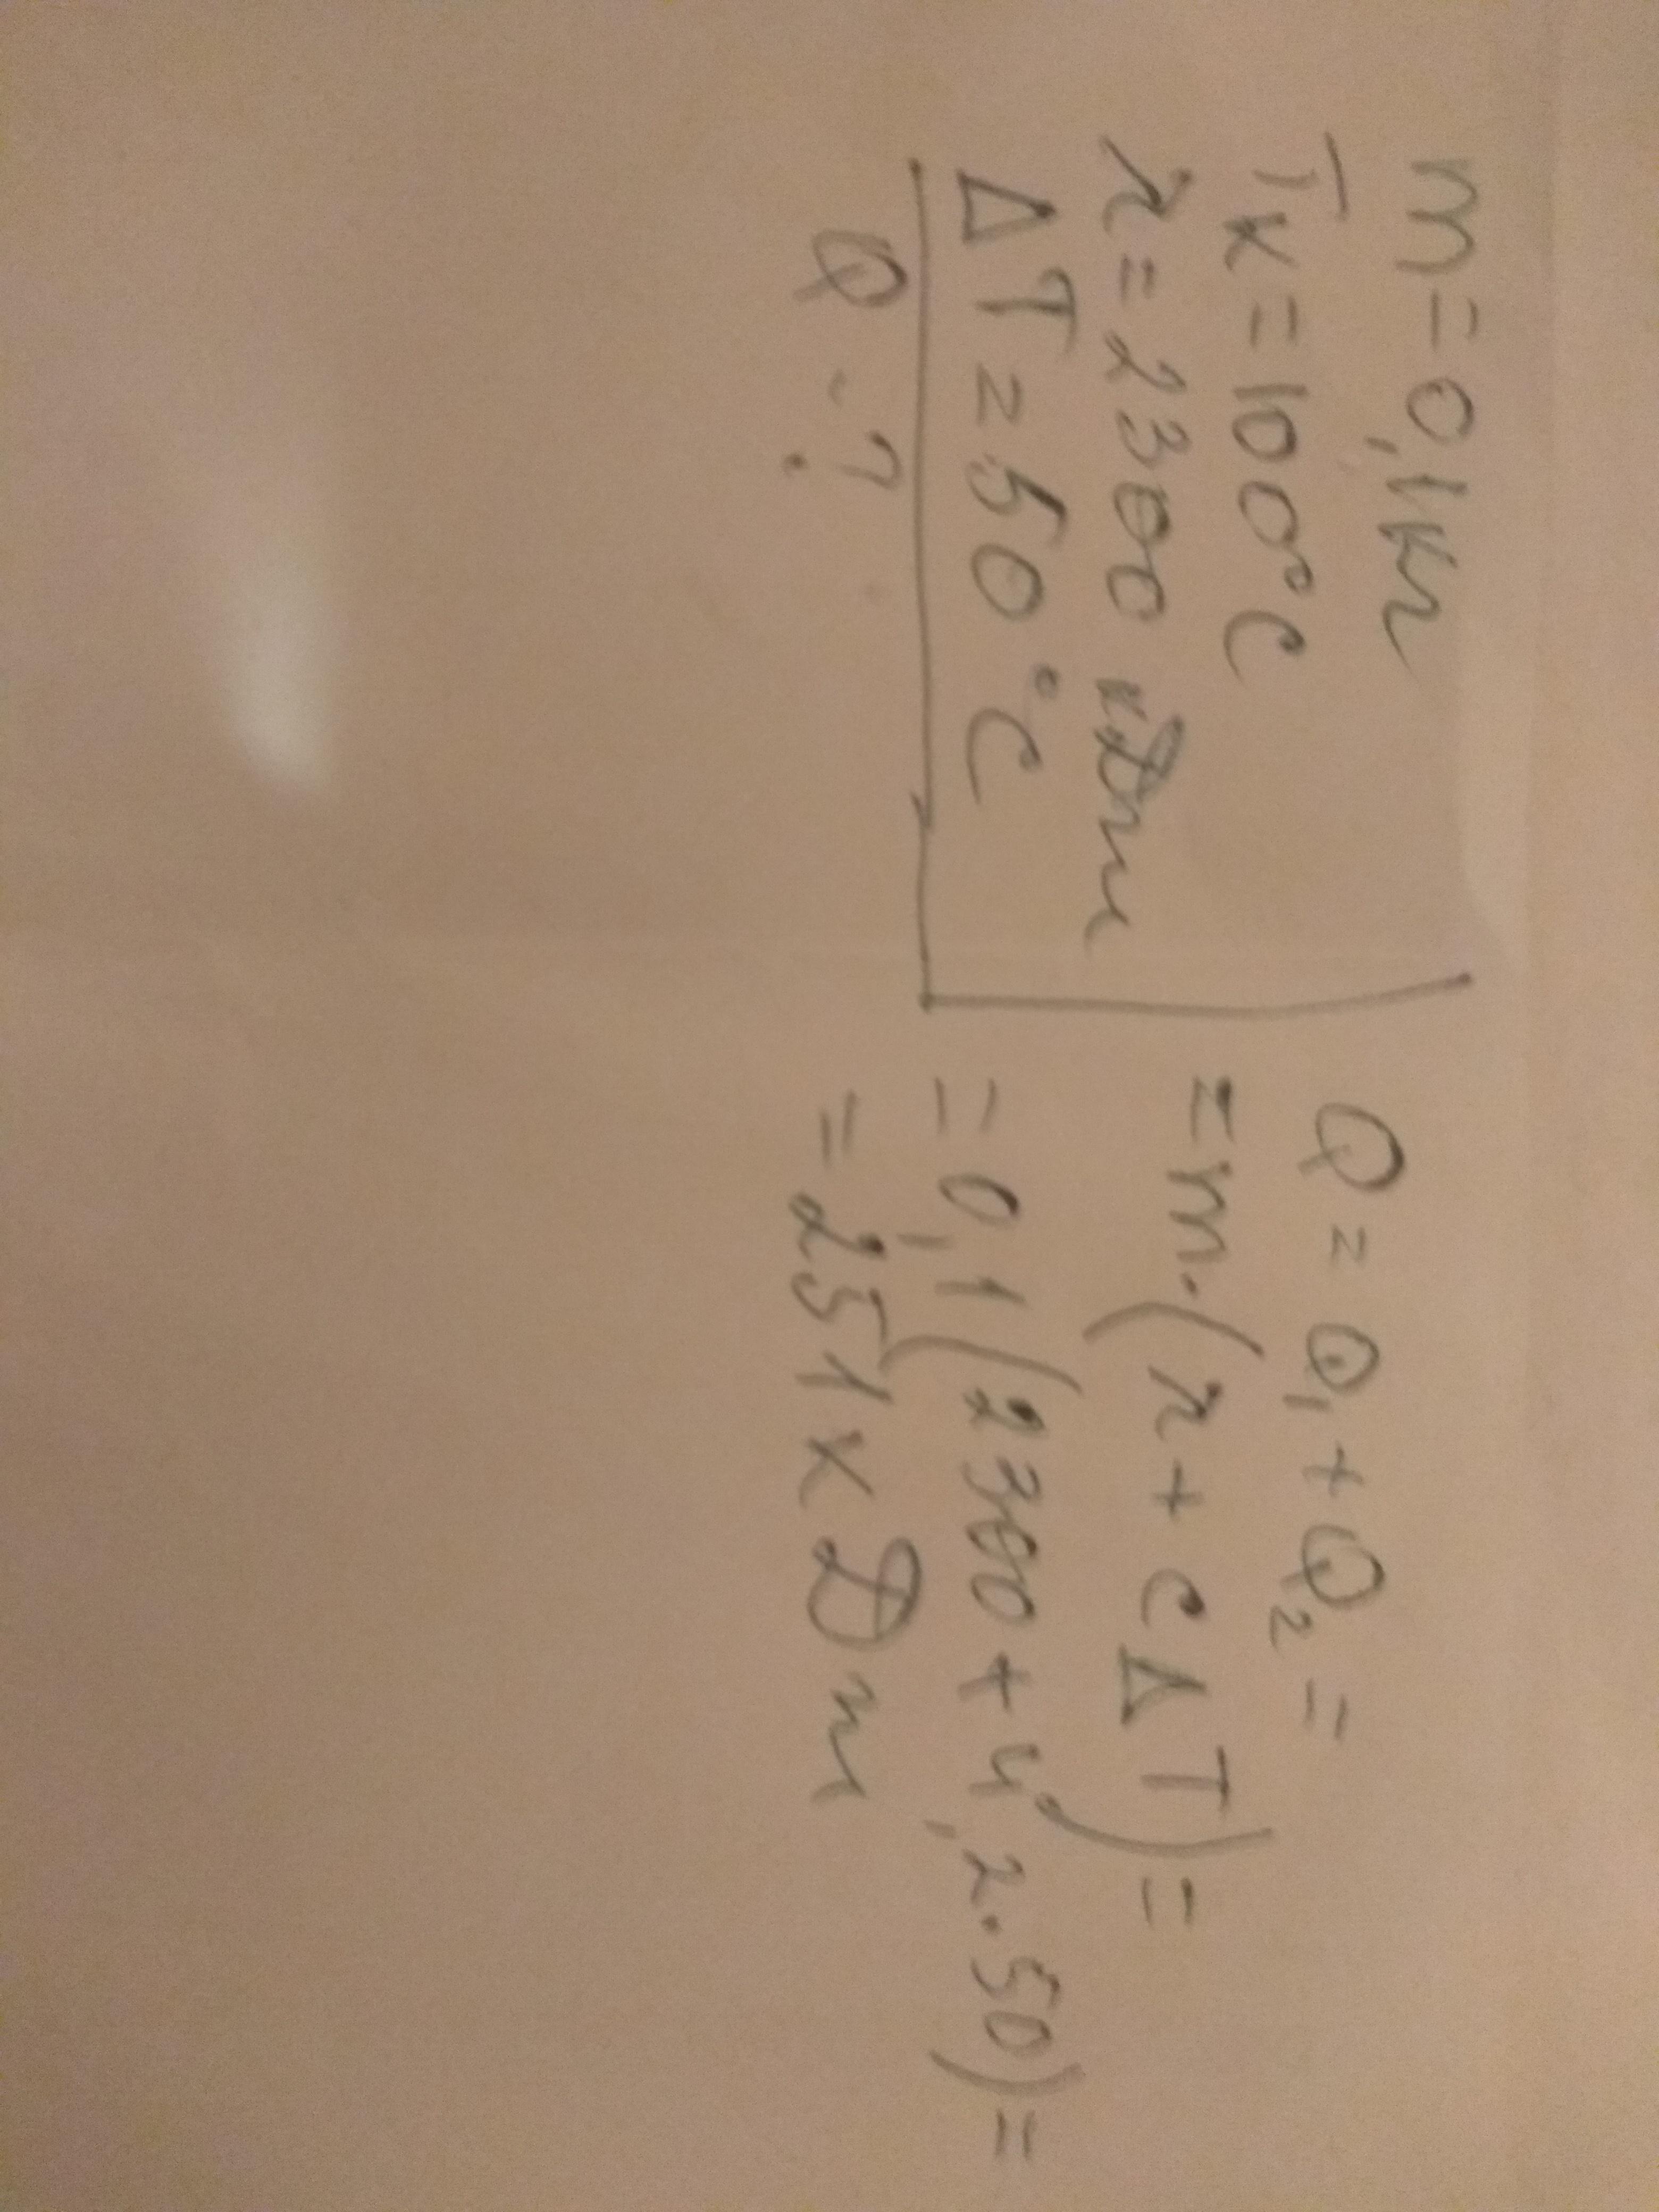 m=0,1кг
Tк=100°C
r=2300 кДж
ΔT=50°C
Q-?
Q=Q₁+Q₂=
=m·(r+cΔT)=
=0,1(2300+4,2·50)=
=251кДж